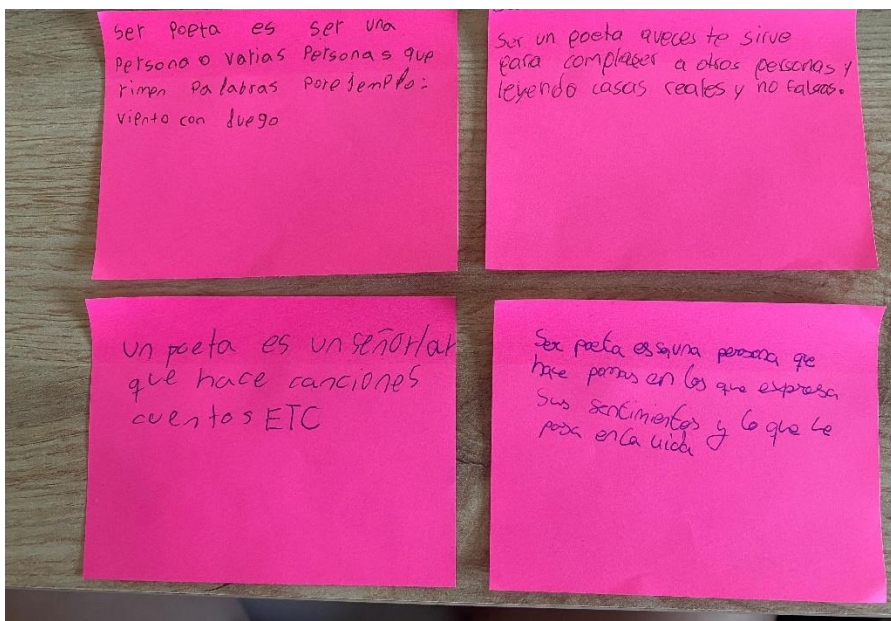 Ser poeta es ser una
Persona o varias Personas que
rimen Palabras Porejemplo:
viento con fuego
Ser un poeta aveces te sirve
para complaser a otras personas y
leyendo cosas reales y no falsas.
un poeta es un señor/ar
que hace canciones
cuentos ETC
Ser poeta es una persona que
hace pomas en los que expresa
Sus sentimientos y lo que le
pasa en la vida